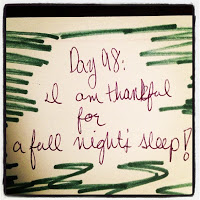 Day 98:
I am thankful
for
a full night's sleep!